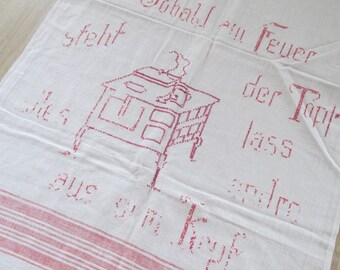 Sobald am Feuer
steht der Topf
lass
andre
aus dem Kopf